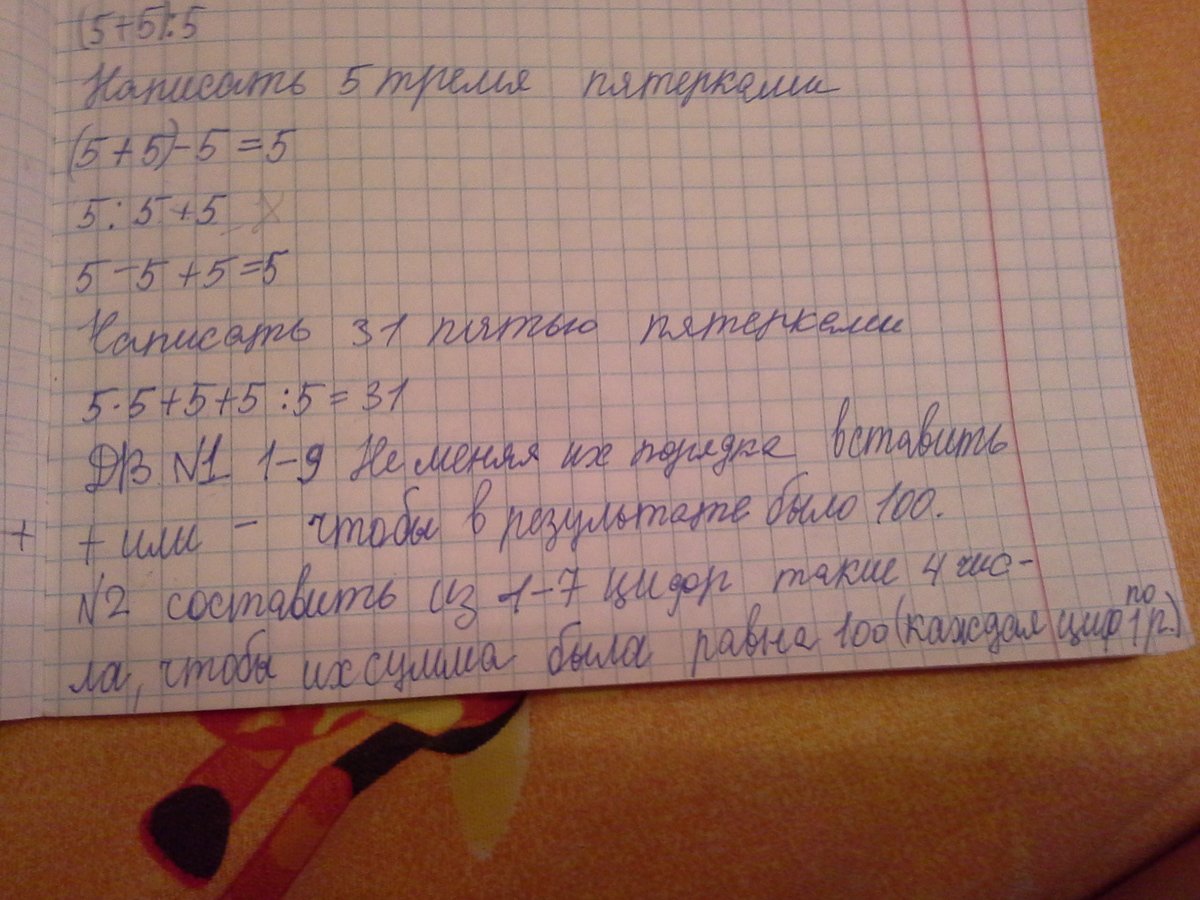 (5+5):5
Написать 5 тремя пятерками
(5+5)-5=5
5:5+5
5-5+5=5
Написать 31 пятью пятерками
5·5+5+5:5=31
Д/З №1 1-9 Не меняя их порядка вставить
+ + или - чтобы в результате было 100.
№2 составить из 1-7 цифр такие 4 чис-
ла, чтобы их сумма была равна 100 (каждая циф по 1 р.)